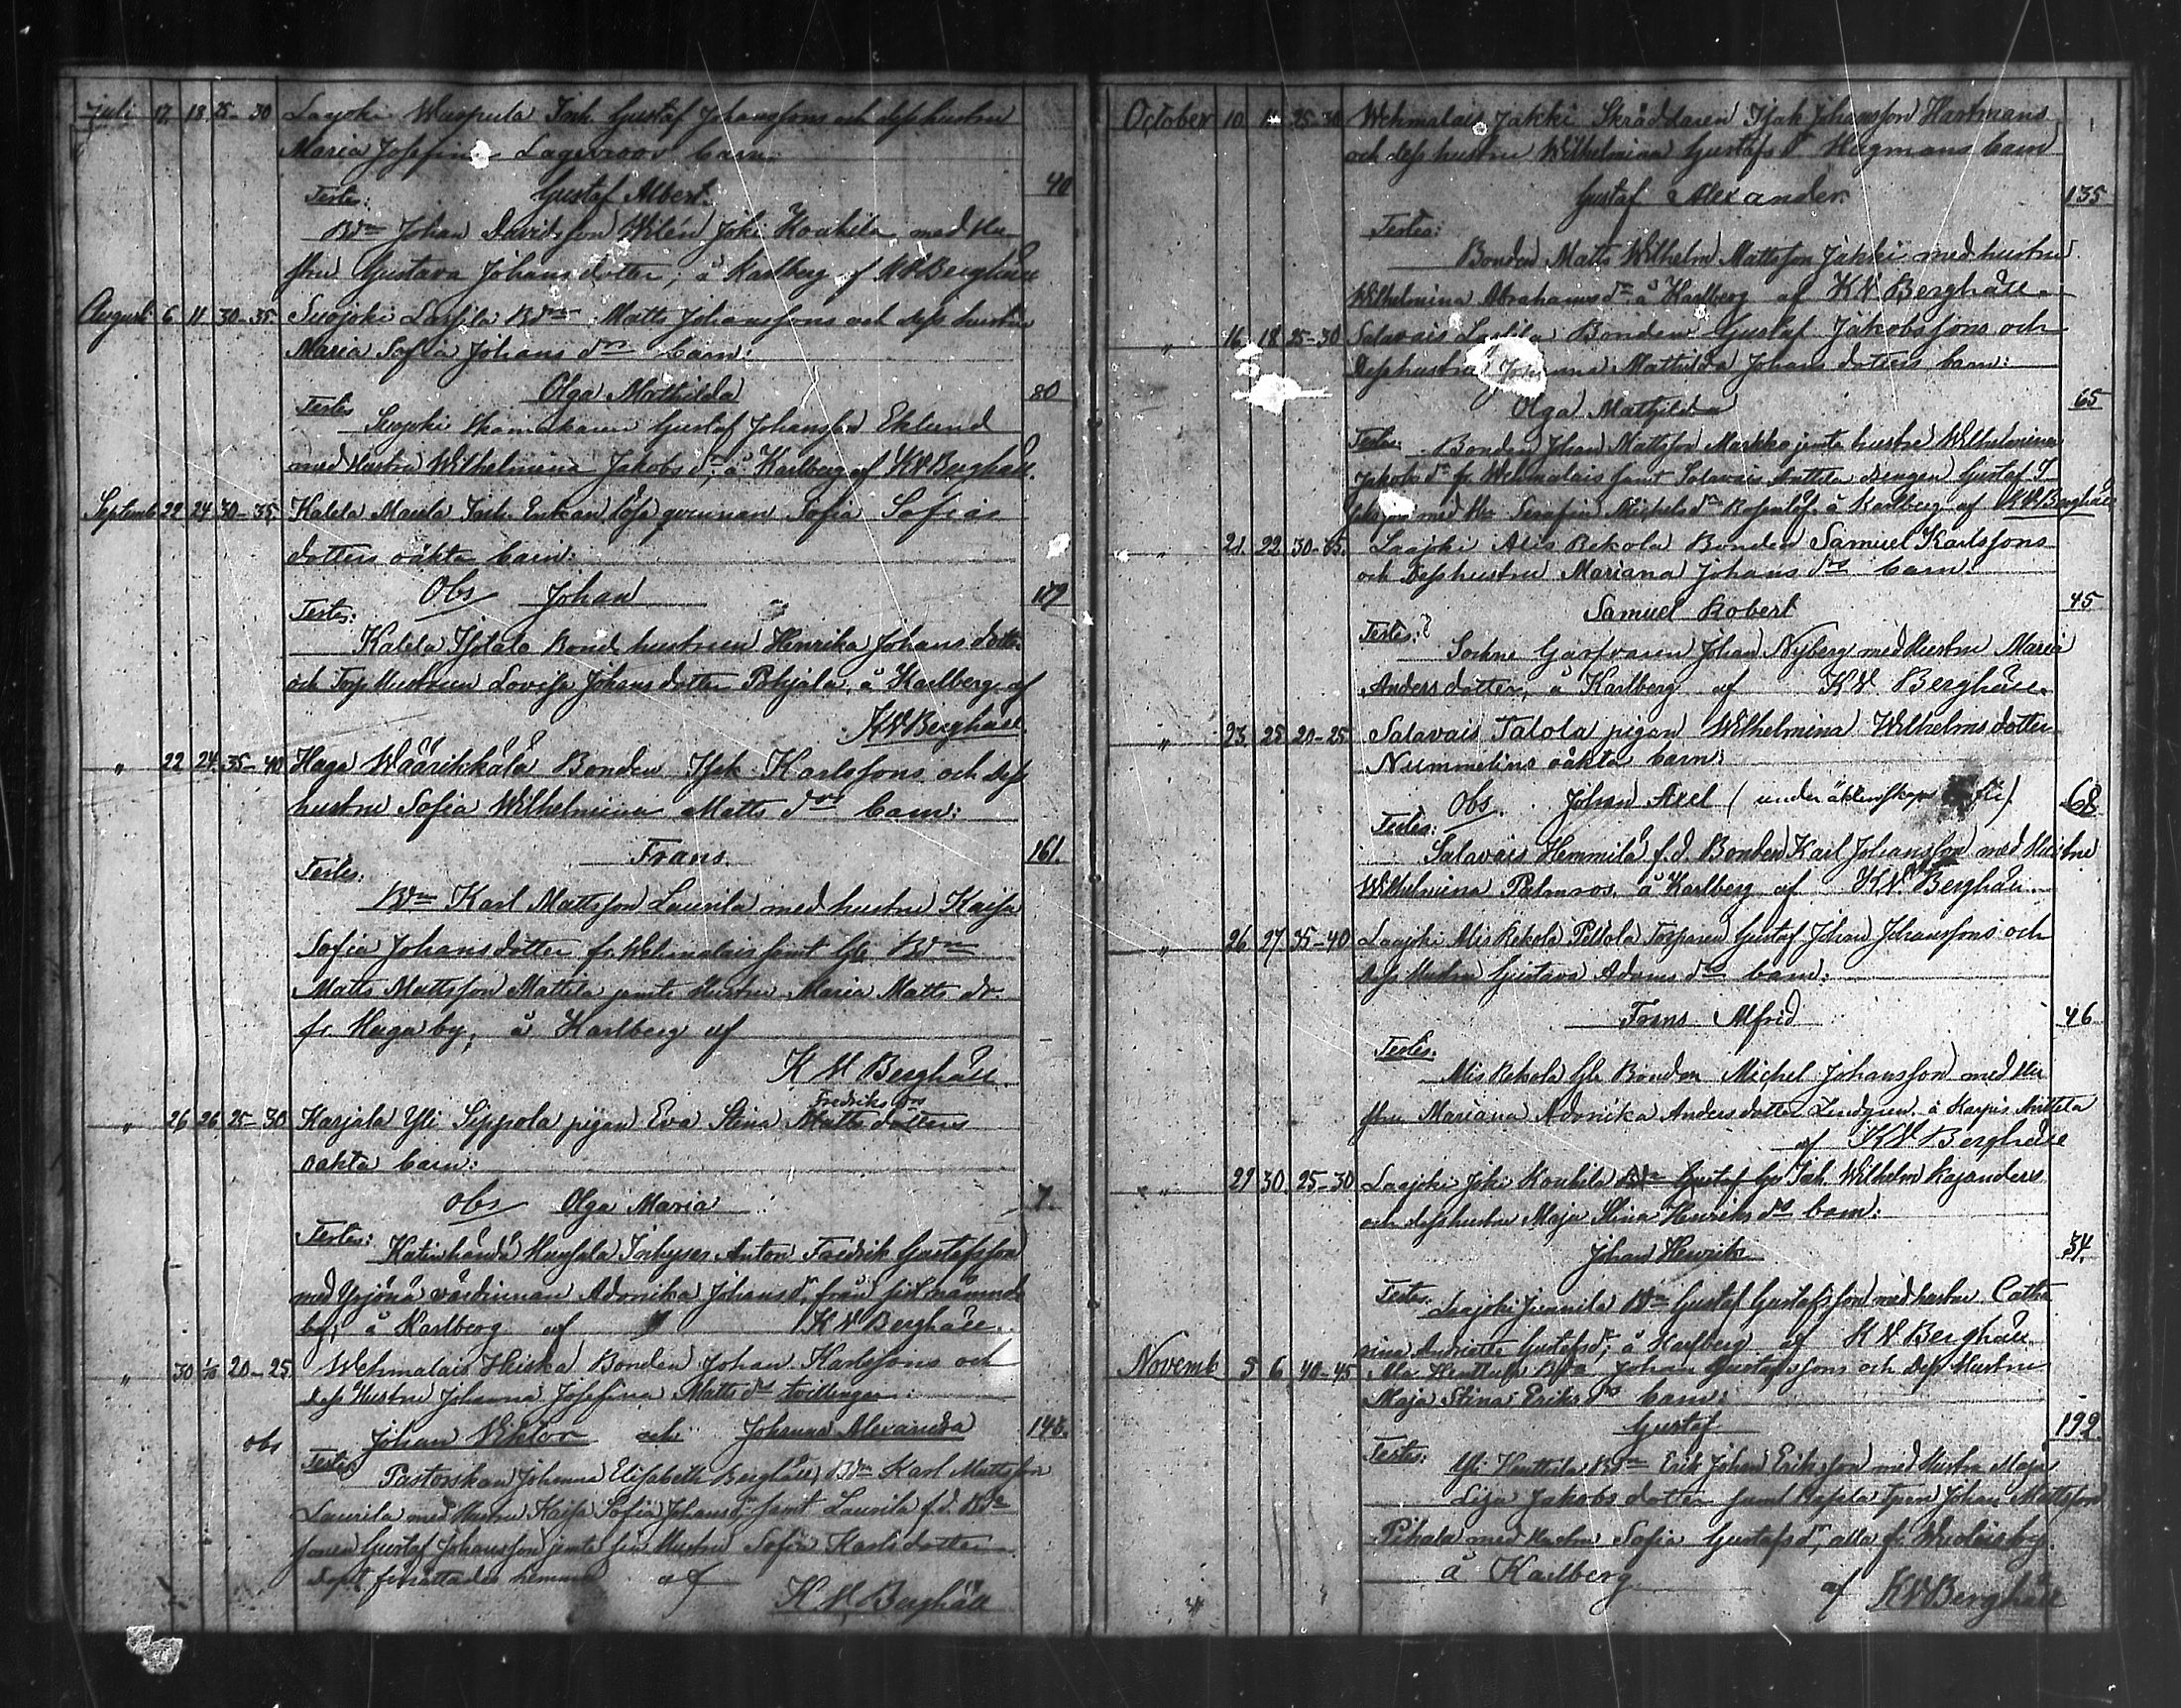 Juli 17. 18. 25-30 Laajoki Wuopula Inh. Gustaf Johanssons och dess hustru
Maria Josefina Lagerroos barn:
Gustaf Albert. 40
Testes:
Bdn Johan Davidsson Wilén Joki Koukila med Hu-
stru Gustava Johansdotter; å Karlberg af KWBerghäll
Augusti 6 11 30-35 Suojoki Lassila Bdn Matts Johanssons och dess hustru
Maria Sofia Johans drs barn:
Olga Mathilda 80
Testes
Suojoki Gustaf Johansson Eklund
med Hustru Wilhelmina Jakobs dr, å Karlberg af KWBerghäll.
Septemb 22 24 30-35 Kalela Maula Inh. Enkan lösa qvinnan Sofia Sofias
dotters oäkta barn:
Obs Johan 119
Testes:
Kalela Isotalo Bonds hustrun Henrika Johansdotter
och Torp Hustrun Lovisa Johansdotter Pohjala, å Karlberg, af
KWBerghäll
" 22 24 35-40 Haga Wäärikkälä Bonden Isak Karlssons och dess
hustru Sofia Wilhelmina Matts drs barn:
Frans 161.
Testes:
Bdn Karl Mattsson Laurila med hustru Kaisa
Sofia Johansdotter fr. Wehmalais samt Gle Bdn
Matts Mattsson Mattila jemte Hustru Maria Matts dr.
fr. Haga by, å Karlberg af
K W Berghäll
" 26 26 25-30 Karjala Yli Sippola pigan Eva Stina Fredriks drs Matts dotters
oäkta barn:
Obs Olga Maria 7.
Testes:
Katinhäntä Hanssela Inhyses Anton Fredrik Gustafsson
med Yrjönä värdinnan Adonika Johans dr från sistnämnde
by; å Karlberg af KWBerghäll
" 30 1/10 20-25 Wehmalais Heiska Bonden Johan Karlssons och
dess Hustru Johanna Josefina Matts drs tvillingar:
obs Johan Viktor och Johanna Alexandra 148.
Testes:
Pastorskan Johanna Elisabeth Berghäll, Bdn Karl Mattsson
Laurila med Hustru Kaisa Sofia Johans dr, samt Laurila f.d. Bdn
Gustaf Johansson jemte sin Hustru Sofia Karlsdotter
Dopet förrättades hemma af K W Berghäll
October 10. 11 25-30 Wehmalais Jakki Skräddaren Isak Johansson Hartmans
och dess hustru Wilhelmina Gustafs dr Hagmans barn
Gustaf Alexander. 135
Testes:
Bonden Matts Wilhelm Mattsson Jakki med hustru
Wilhelmina Abrahams dr å Karlberg af KW Berghäll.
" 16 18 25-30 Salavais Bonden Gustaf Jakobssons och
Dess hustru Johanna Mathilda Johans dotters barn:
Olga Mathilda 65
Testes:
Bonden Johan Mattsson Markko jemte hustru Wilhelmina
Jakobs dr fr. Wehmalais samt Salavais Anttila drengen Gustaf
med Hu Serafia Michels dr å Karlberg af KWBerghäll
" 21. 22 30-35. Laajoki Alis Rekola Bonden Samuel Karlssons
och Dess hustru Mariana Johans drs barn:
Samuel Robert 45
Testes:
Sockne Garfvaren Johan Nyberg med Hustru Maria
Andersdotter, å Karlberg af KW Berghäll.
" 23. 25 20-25 Salavais Talola pigan Wilhelmina Wilhelmsdotter
Nummelins oäkta barn:
Obs. Johan Axel (under äktenskaps 68
Testes:
Salavais Hemmilä f.d. Bonden Karl Johansson med Hustru
Wilhelmina Palmroos å Karlberg af KW Berghäll
" 26 27 35-40 Laajoki Alis Rekola Peltola Torparen Gustaf Johan Johanssons och
dess Hustru Gustava Adams drs barn:
Frans Alfrid 46
Testes.
Alis Rekola Gle Bonden Michel Johansson med Hu
stru Mariana Adonika Andersdotter Lindgren å Karpis Anttila
af KW Berghäll
" 29 30 25-30 Laajoki Joki Koukila Bdn Gustaf Gu Inh. Wilhelm Kajanders
och dess hustru Maja Stina Henriks drs barn:
Johan Henrik 34.
Testes.
Laajoki Juanila Bdn Gustaf Gustafsson med hustru Catha
rina Andriette Gustafs dr, å Karlberg af KW Berghäll
Novemb 5 6 40-45 Ala Henttula Bdn Johan Gustafssons och Dess Hustru
Maja Stina Eriks drs barn:
Gustaf 192
Testes:
Yli Henttula Bdn Erik Johan Eriksson med Hustru Maja
Lisa Jakobsdotter samt Torpn Johan Mattsson
Pihala med Hustru Sofia Gustafs dr, alla fr. by.
å Karlberg af KWBerghäll